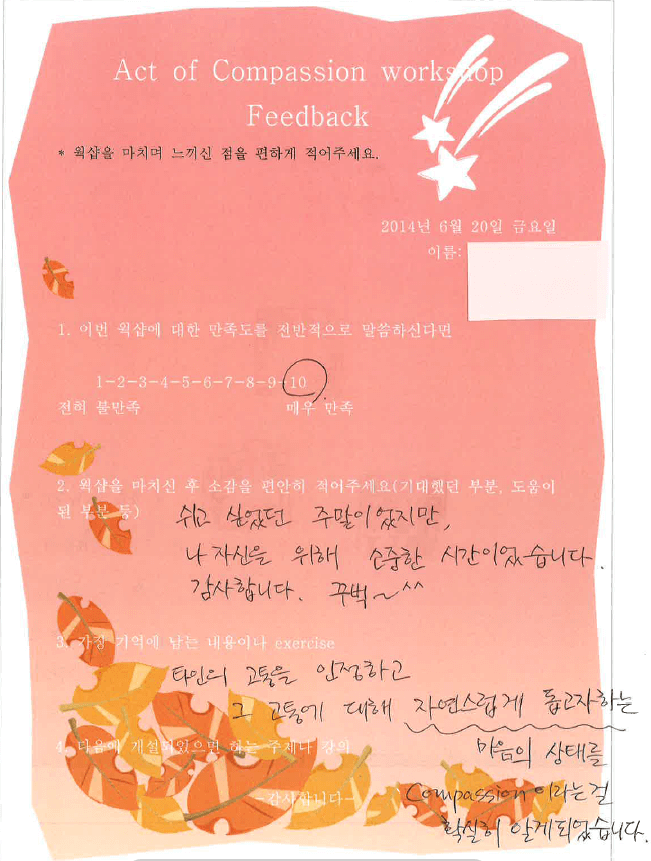 Act of Compassion workshop
Feedback
* 웍샵을 마치며 느끼신 점을 편하게 적어주세요.
2014년 6월 20일 금요일
이름:
1. 이번 웍샵에 대한 만족도를 전반적으로 말씀하신다면
1-2-3-4-5-6-7-8-9-10
전혀 불만족 매우 만족
2. 웍샵을 마치신 후 소감을 편안히 적어주세요(기대했던 부분, 도움이
된 부분 등)
쉬고 싶었던 주말이었지만,
나 자신을 위해 소중한 시간이었습니다.
감사합니다. 꾸벅~^^
3. 가장 기억에 남는 내용이나 exercise
타인의 고통을 인정하고
그 고통에 대해 자연스럽게 돕고자하는
마음의 상태를
Compassion이라는걸
확실히 알게되었습니다.
4. 다음에 개설되었으면 하는 주제나 강의
-감사합니다-